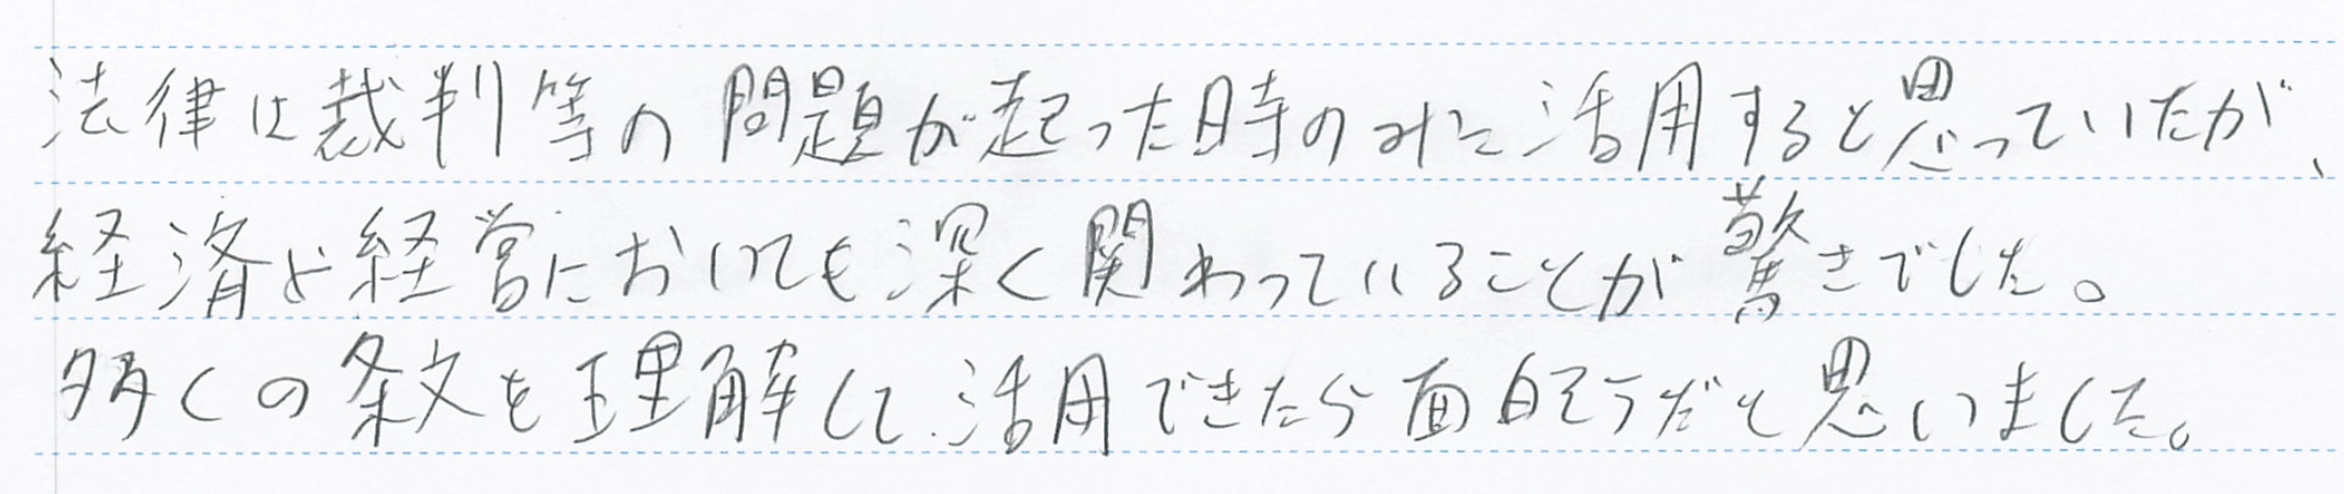 法律は裁判等の問題が起った時のみに活用すると思っていたが、
経済と経営においても深く関わっていることが驚きでした。
多くの条文を理解して活用できたら面白そうだと思いました。